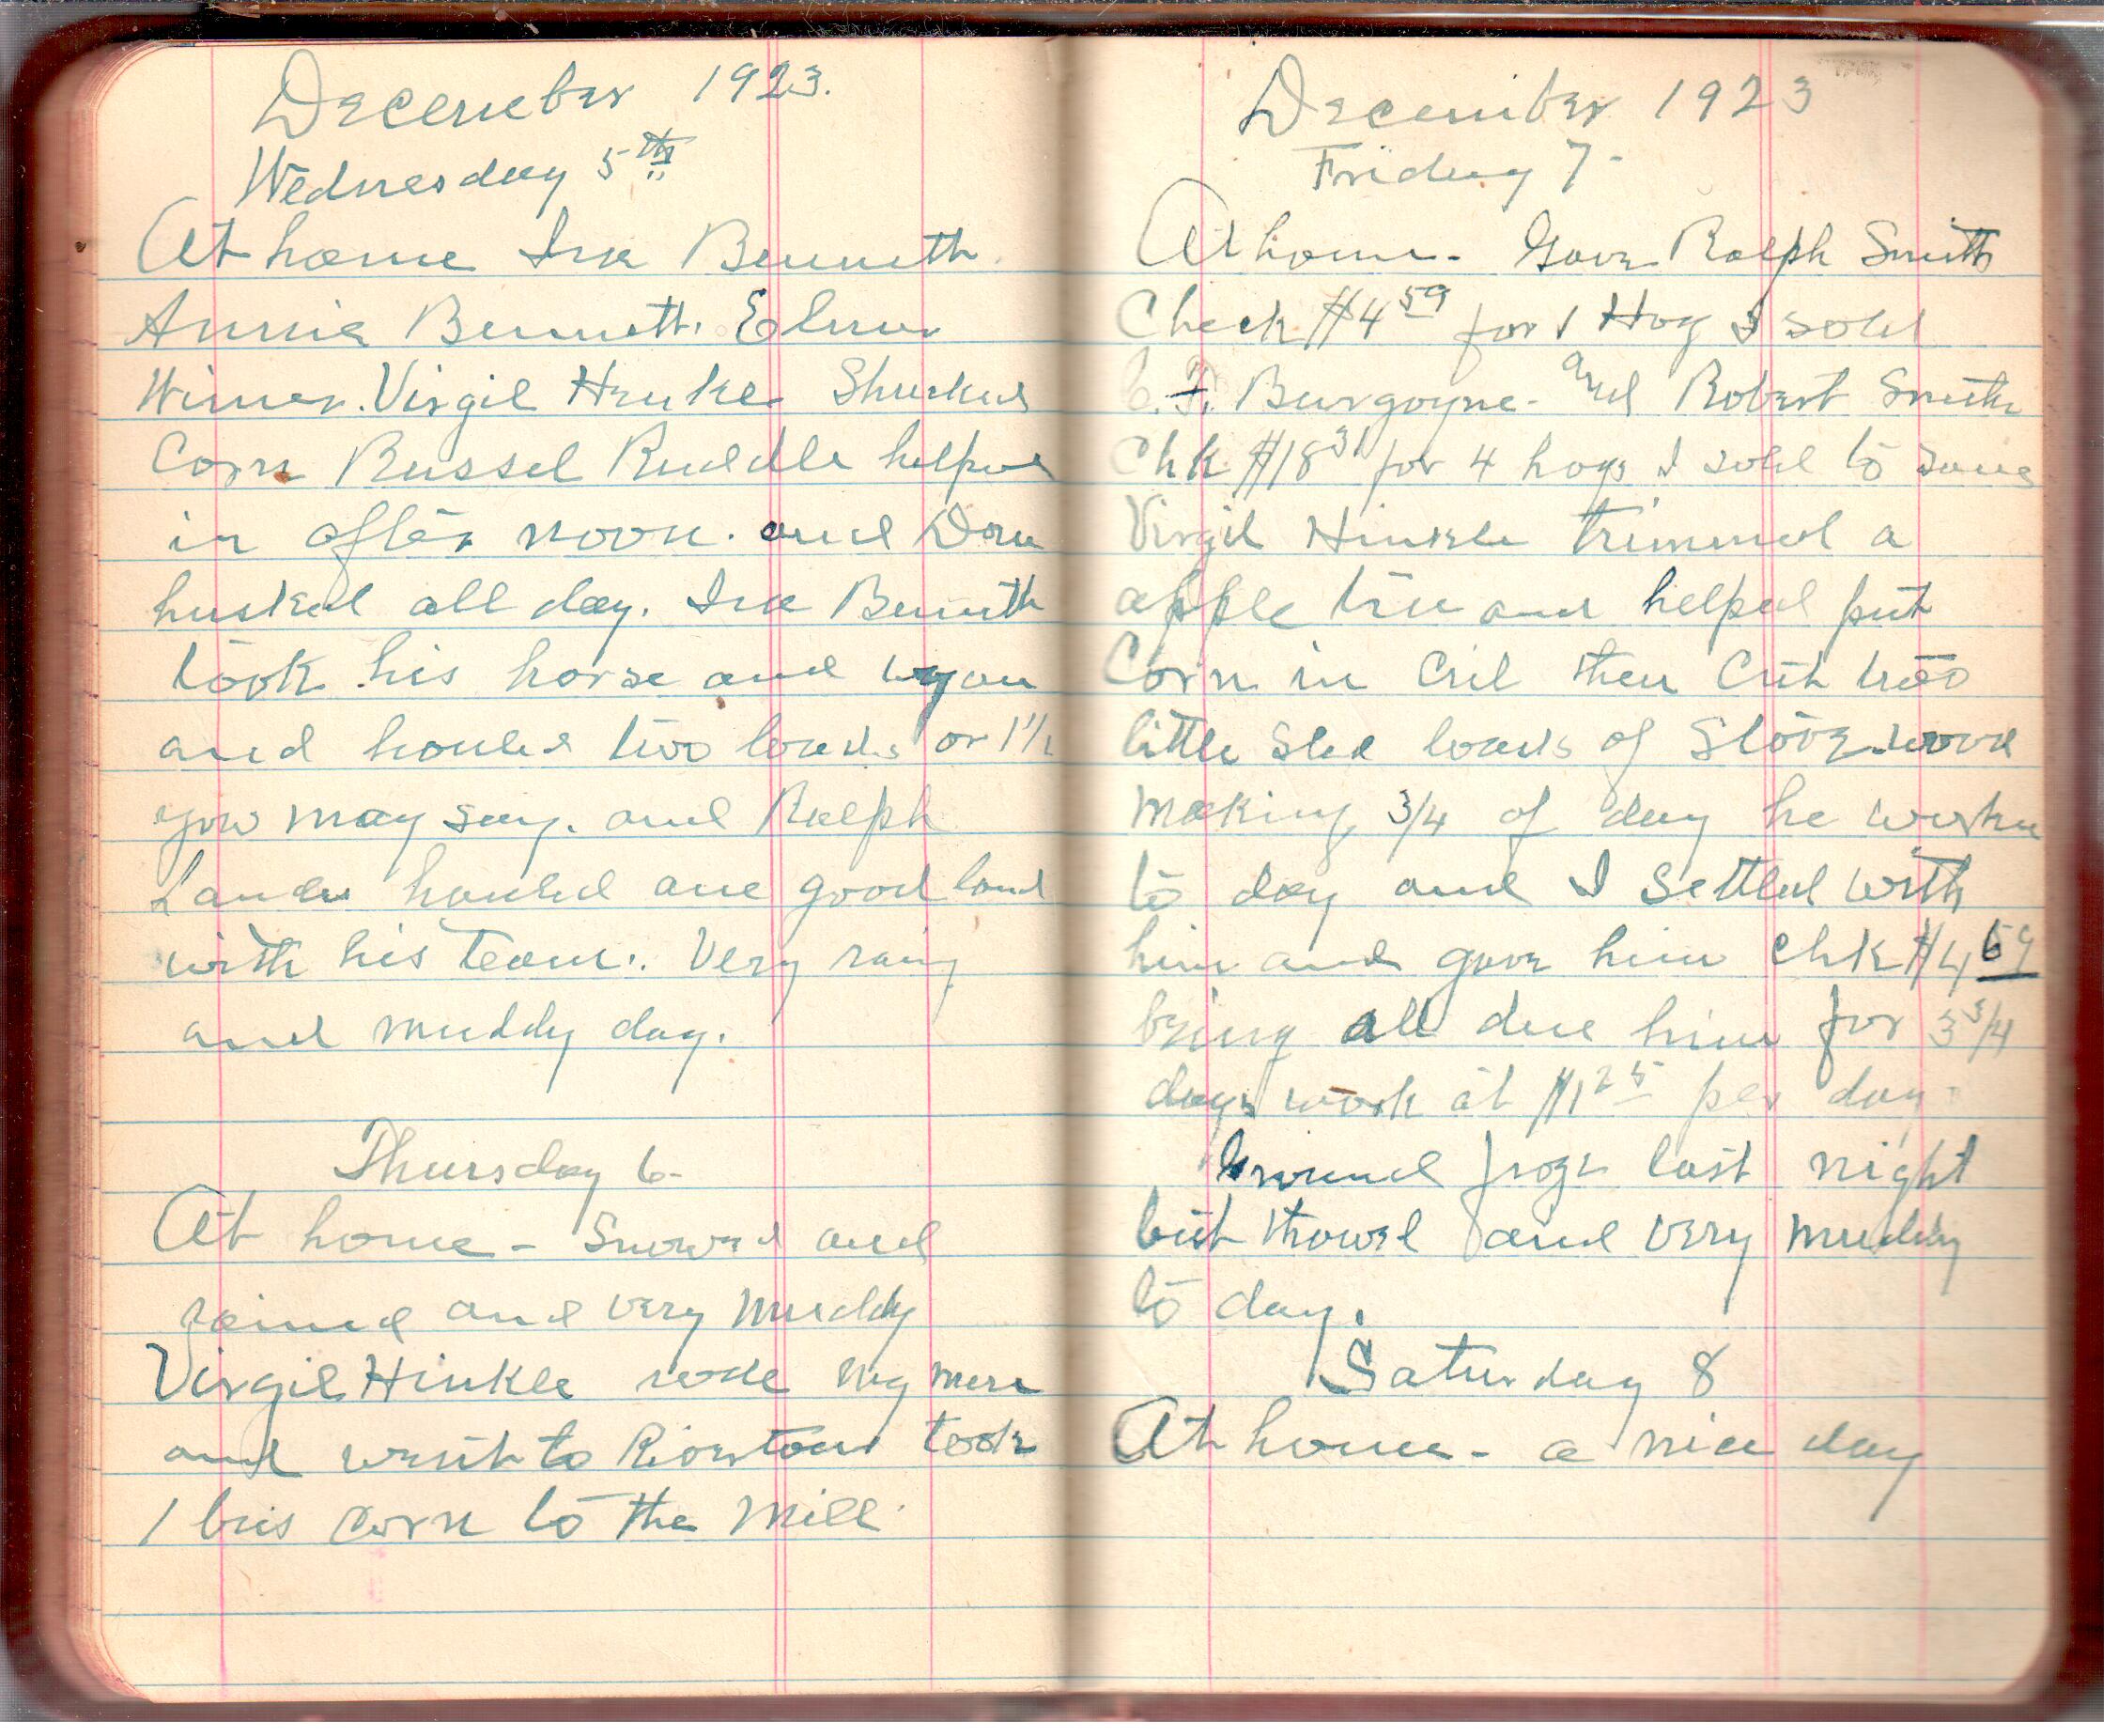 December 1923.
Wednesday 5th
At home Ira Bennett
Annie Bennett. Elmer
Wimer. Virgil Hinkle Shucked
Corn Russel Ruddle helped
in after noon. and Don
husked all day. Ira Bennett
took his horse and wagon
and houled two loads or 1 1/2
you may say. and Ralph
Landes houled one good load
with his team. Very rainy
and muddy day.
Thursday 6-
At home - Snowed and
rained and very muddy
Virgil Hinkle rode my mare
and went to Riverton took
1 bus corn to the mill.
December 1923
Friday 7-
At home - Gave Ralph Smith
Check $4 59 for 1 Hog I sold
C. F. Burgoyne - and Robert Smith
Chk $18 31 for 4 hogs I sold to same
Virgil Hinkle trimmed a
apple tree and helped put
Corn in Crib then Cut two
little sled loads of Stove wood
Making 3/4 of day he worked
to day and I Settled with
him and gave him Chk $4 69
being all due him for 3 3/4
days work at $1 25 per day-
Ground froze last night
but thawed and very muddy
to day.
Saturday 8
At home - a nice day